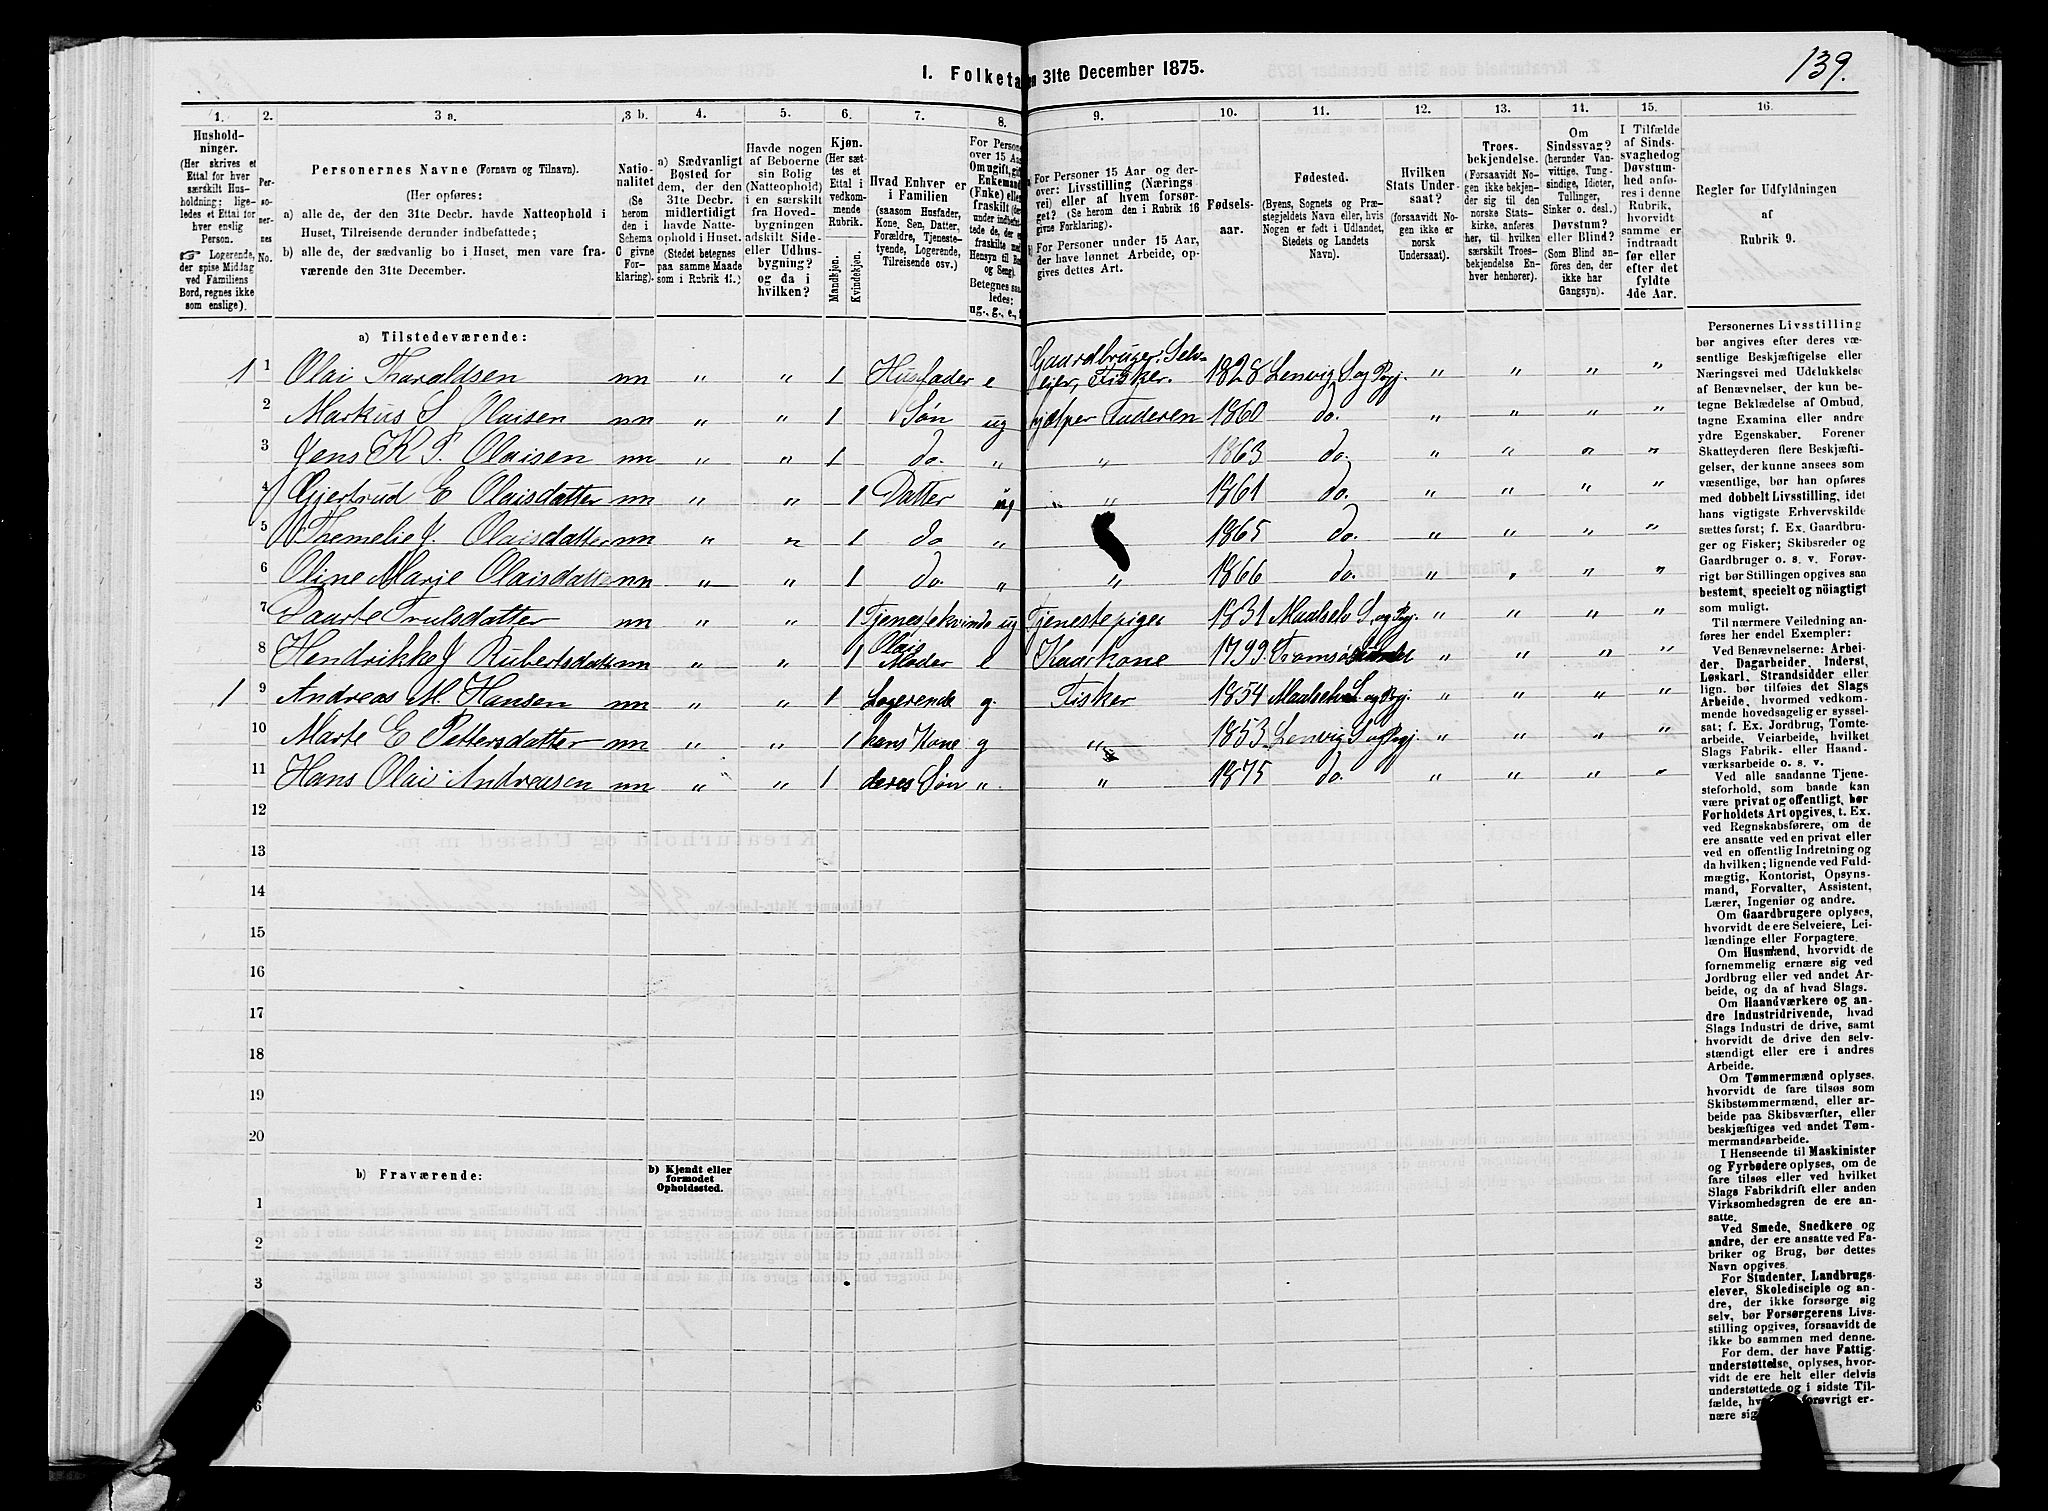 139.
I. Folketa
en 31te December 1875.
1.
2.
3 a.
3 b.
4.
5.
6.
7.
8.
9.
10.
11.
12.
13.
14.
15.
16.
Hushold-
ninger.
(Her skrives et
Ettal for hver
særskilt Hus-
holdning; lige-
ledes et Ettal for
hver enslig
Person.
☞ Logerende,
der spise Middag
ved Familiens
Bord, regnes ikke
som enslige).
Per-
so-
ner-
nes
No.
Personernes Navne (Fornavn og Tilnavn).
(Her opføres:
a) alle de, der den 31te Decbr. havde Natteophold i
Huset, Tilreisende derunder indbefattede;
b) alle de, der sædvanlig bo i Huset, men vare fra-
værende den 31te December.
Natio-
nalitet
(Se
herom
den i
Schema
G givne
For-
klaring).
a) Sædvanligt
Bosted for
dem, der den
31te Decbr.
midlertidigt
havde Natte-
ophold i Huset.
(Stedet betegnes
paa samme Maade
som i Rubrik 11.)
Havde nogen
af Beboerne
sin Bolig
(Natteophold)
i en særskilt
fra Hoved-
bygningen
adskilt Side-
eller Udhus-
bygning?
og da i
hvilken?
Kjøn.
(Her sæt-
tes et
Ettal i
vedkom-
mende
Rubrik.
Mandkjøn.
Kvindekjøn.
Hvad Enhver er
i Familien
(saasom Husfader,
Kone, Søn, Datter,
Forældre, Tjeneste-
tyende, Logerende,
Tilreisende osv.)
For Persone
over 15 Aar
Om ugift, gift
Enkemand
(Enke) eller
fraskilt
Betegnes saa-
ledes:
ug., g., e., f.
For Personer 15 Aar og der-
over: Livsstilling (Nærings-
vei) eller af hvem forsør-
get? (Se herom den i Rubrik 16
givne Forklaring).
b) For Personer under 15 Aar,
der have lønnet Arbeide, op-
gives dettes Art.
Fødsels-
aar.
Fødested.
(Byens, Sognets og Præ-
stegjeldets Navn eller, hvis
Nogen er født i Udlandet,
Stedets og Landets
Navn).
Hvilken
Stats Under-
saat?
(forsaavidt No-
gen ikke er
norsk
Undersaat).
Troes-
bekjendelse.
(Forsaavidt No-
gen ikke bekjen-
der sig til den
norske Stats-
kirke, anføres
her, til hvilken
særskilt Troes-
bekjendelse En-
hver henhører).
Om
Sindssvag?
(herunder Van-
vittige, Tung-
sindige, Idioter,
Tullinger,
Sinker o. desl.)
Døvstum?
eller Blind?
(Som Blind an-
føres den, der
ikke har
Gangsyn).
I Tilfælde
af Sinds-
svaghed og
Døvstum-
hed anfø-
res i denne
Rubrik,
hvorvidt
samme er
indtraadt
før eller
efter det
fyldte
4de Aar.
Regler for Udfyldningen
af
Rubrik 9.
a) Tilstedeværende:
1 1 Olai Tharaldsen nn „ „ 1 Husfader e Gaardbruger. Selv-
eier, Fisker. 1828 Lenvig S og Prgj. „ „ „ „
2 Markus S Olaisen nn „ „ 1 Søn ug hjælper Faderen 1860 do. „ „ „ „
3 Jens K P. Olaisen nn „ „ 1 do. „ „ 1863 do. „ „ „ „
4 Gjertrud E Olaisdatter nn „ „ 1 Datter ug „ 1861 do. „ „ „ „
5 Themelie J. Olaisdatter nn „ „ 1 do „ 1865 do. „ „ „ „
6 Oline Marje Olaisdatte nn „ „ 1 do. „ „ 1866 do. „ „ „ „
7 Paarte Trulsdatter nn „ „ 1 Tjenestekvinde ug Tjenestepiger 1831 Maalselv S og Prgj. „ „ „ „
8 Hendrikke J Rubertsdatt nn „ „ 1 Olais
Moder e Kaarkone 1799 „ „ „ „
1 9 Andreas M. Hansen nn „ „ 1 Logerende g. Fisker 1854 Maalselv S og Prgj. „ „ „ „
10 Marte E Pettersdatter nn „ „ 1 hans Kone g „ 1853 Lenvig S og Prgj. „ „ „ „
11 Hans Olai Andreasen nn „ „ 1 deres Søn „ „ 1875 do. „ „ „ „
12
13
14
15
16
17
18
19
20
b) Fraværende:
b) Kjendt eller
formodet
Opholdssted.
1
2
3
6
Personernes Livsstilling
bør angives efter deres væ-
sentlige Beskjæftigelse eller
Næringsvei med Udelukkelse
af Benævnelser, der kun be-
tegne Beklædelse af Ombud,
tagne Examina eller andre
ydre Egenskaber. Forener
Skatteyderen flere Beskjæfti-
gelser, der kunne ansees som
væsentlige, bør han opføres
med dobbelt Livsstilling, idet
hans vigtigste Erhvervskilde
sættes først; f. Ex. Gaardbru-
ger og Fisker; Skibsreder og
Gaardbruger o. s. v. Forøv-
rigt bør Stillingen opgives saa
bestemt, specielt og nöiagtigt
som muligt.
Til nærmere Veiledning an-
føres her endel Exempler:
Ved Benævnelserne: Arbei-
der, Dagarbeider, Inderst,
Løskarl, Strandsidder eller
lign. bør tilføies det Slags
Arbeide, hvormed vedkom-
mende hovedsagelig er syssel-
sat; f. Ex. Jordbrug, Tomte-
arbeide, Veiarbeide, hvilket
Slags Fabrik- eller Haand-
værksarbeide o. s. v.
Ved alle saadanne Tjene-
steforhold, som baade kan
være privat og offentligt, bør
Forholdets Art opgives, t. Ex.
ved Regnskabsførere, om de
ere ansatte ved en privat eller
ved en offentlig Indretning og
da hvilken; lignende ved Fuld-
mægtig, Kontorist, Opsyns-
mand, Forvalter, Assistent,
Lærer, Ingeniør og andre.
Om Gaardbrugere oplyses,
hvorvidt de ere Selveiere, Lei-
lændinge eller Forpagtere.
Om Husmænd, hvorvidt de
fornemmelig ernære sig ved
Jordbrug eller ved andet Ar-
beide, og da af hvad Slags.
Om Haandværkere og an-
dre Industridrivende, hvad
Slags Industri de drive, samt
hvorvidt de drive den selv-
stændigt eller ere i andres
Arbeide.
Om Tømmermænd oplyses,
hvorvidt de fare tilsøs som
Skibstømmermænd, eller ar-
beide paa Skibsværfter, eller
beskjæftiges ved andet Tøm-
mermandsarbeide.
I Henseende til Maskinister
og Fyrbødere oplyses, om de
fare tilsøs eller ved hvilket
Slags Fabrikdrift eller anden
Virksomhedsgren de ere an-
satte.
Ved Smede, Snedkere og
andre, der ere ansatte ved Fa-
briker og Brug, bør dettes
Navn opgives.
For Studenter, Landbrugs-
elever, Skoledisciple og an-
dre, der ikke forsørge sig
selv, bør Forsørgerens Livs-
stilling opgives, forsaavidt de
ikke bo sammen med denne.
For dem, der have Fattig-
understøttelse, oplyses, hvor-
vidt de ere helt eller delvis
understøttede og i sidste Til-
fælde, forøvrigt er-
nære sig